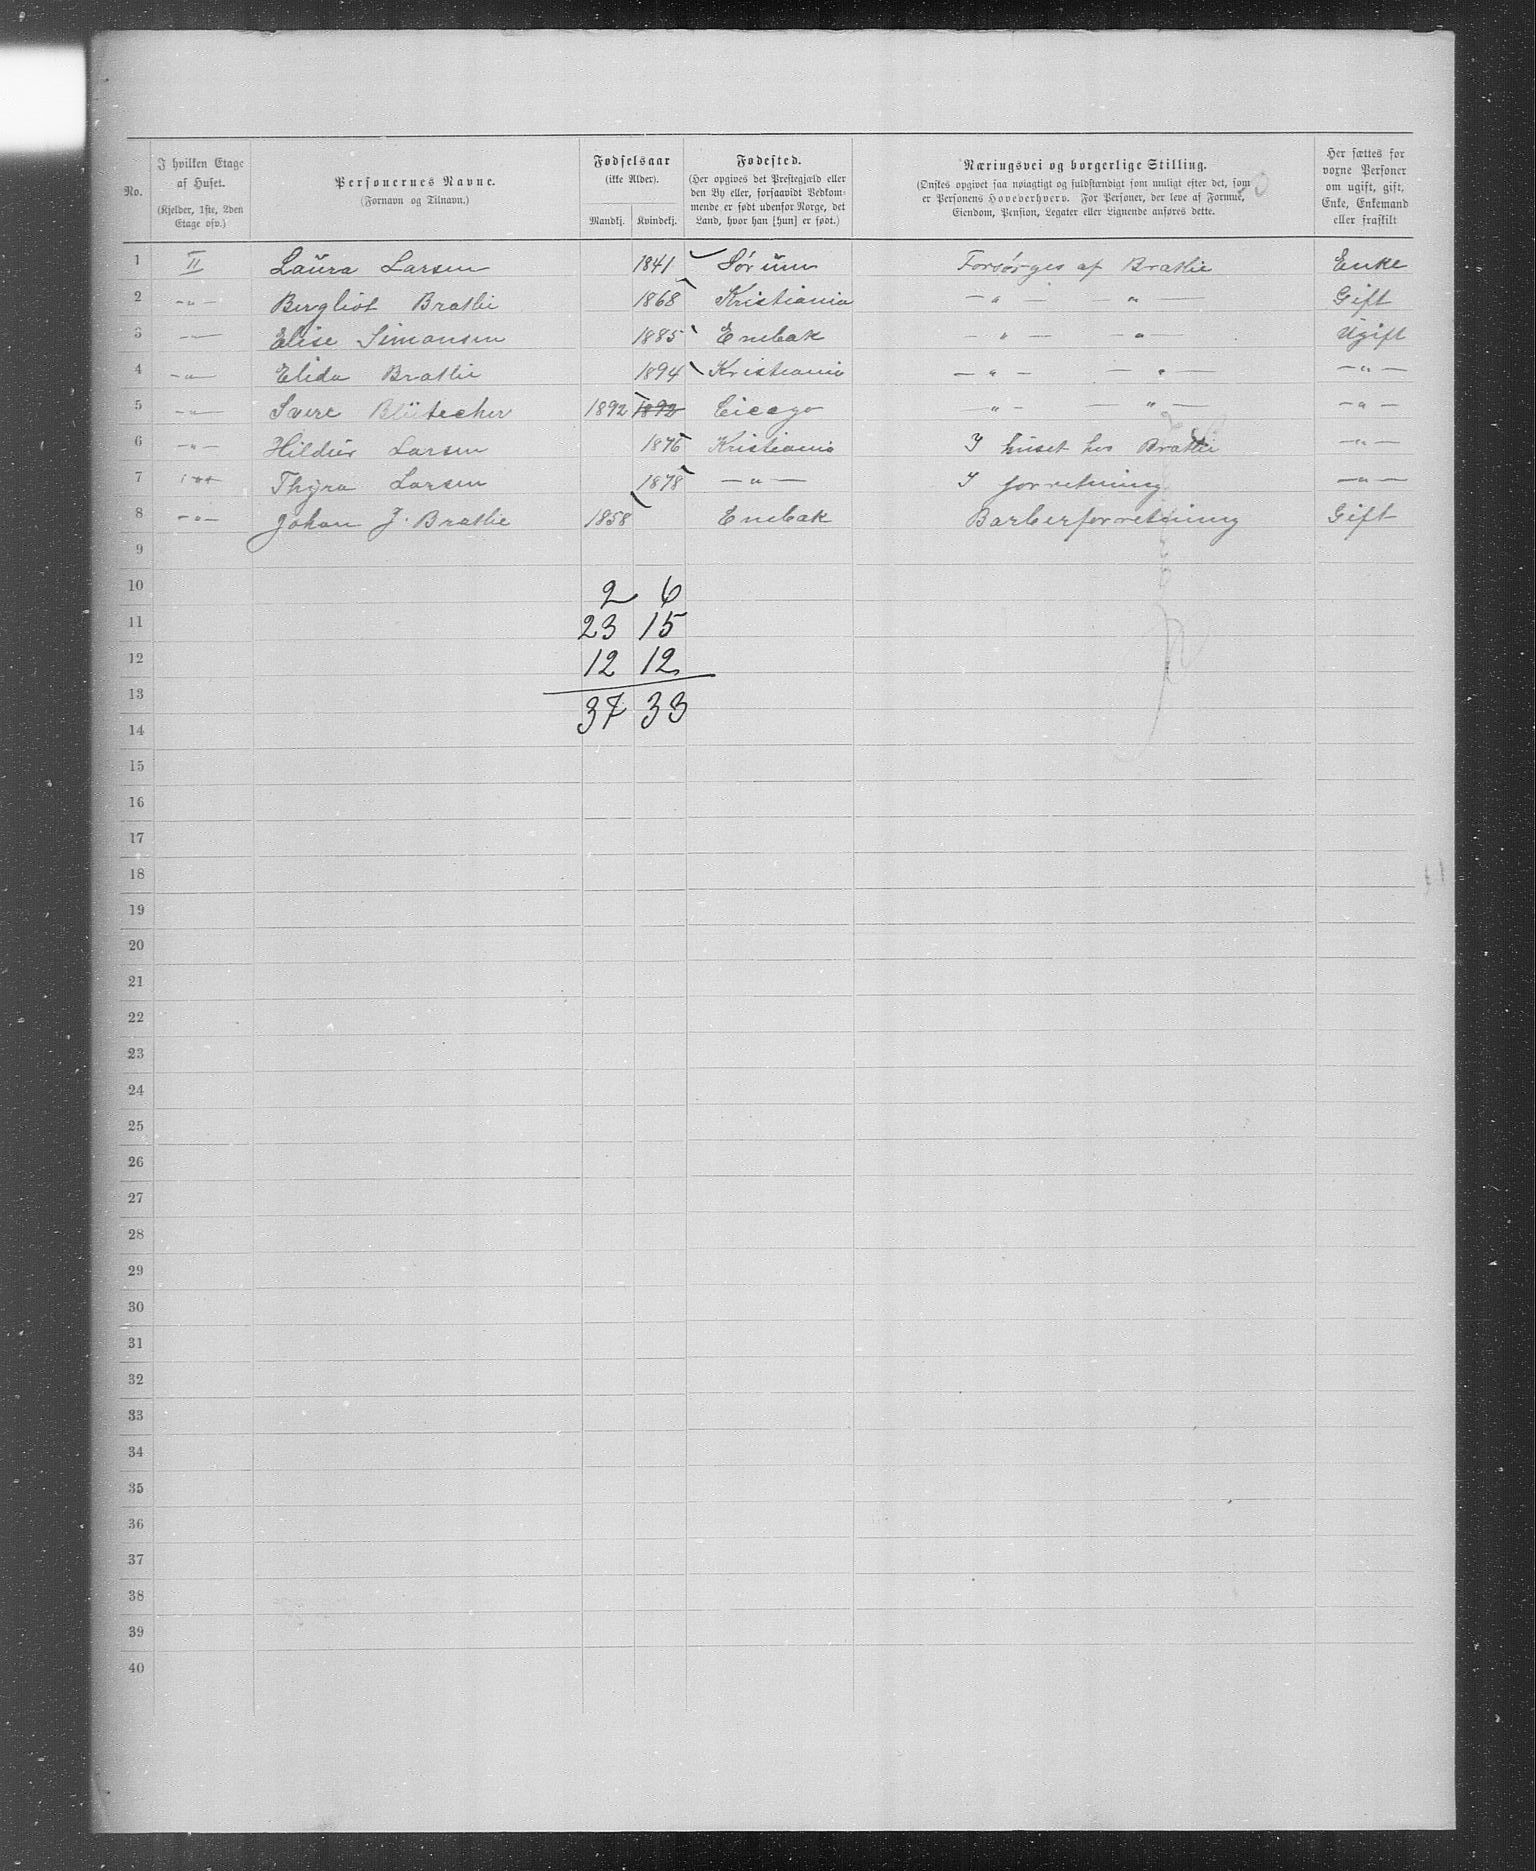 No. | I hvilken Etage af Huset. (Kjelder, 1ste, 2den Etage osv.) | Personernes Navne. (Fornavn og Tilnavn.) | Fødselsaar (ikke Alder). Mandkj. | Kvindekj. | Fødested. (Her opgives det Prestegjæld eller den By eller, forsaavidt Vedkommende er født udenfor Norge, det Land, hvor han [hun] er født.) | Næringsvei og borgerlige Stilling. (Ønskes opgivet saa nøiagtigt og fuldstændigt som muligt efter det, som er Personens Hovederhverv. For Personer, der leve af Formue, Eiendom, Pension, Legater eller Lignende anføres dette. | Her sættes for voxne Personer om ugift, gift, Enke, Enkemand eller fraskilt
1 II Laura Larsen 1841 Sørum Forsørges af Bratlie Enke
2 -"- Bergliot Bratlie 1868 Kristiania -"- -"- Gift
3 -"- Elise Simonsen 1885 Enebak -"- -"- Ugift
4 -"- Elida Bratlie 1894 Kristiania -"- -"- -"-
5 -"- Svere Blütecher 1892 1892 Cicago -"- -"- -"-
6 -"- Hildur Larsen 1876 Kristiania I huset hos Bratlie -"-
7 -"- Thyra Larsen 1878 -"- I forretning -"-
8 -"- Johan J. Bratlie 1858 Enebak Barberforretning Gift
9
10 2 6
11 23 15
12 12 12
13 37 33
14
15
16
17
18
19
20
21
22
23
24
25
26
27
28
29
30
31
32
33
34
35
36
37
38
39
40